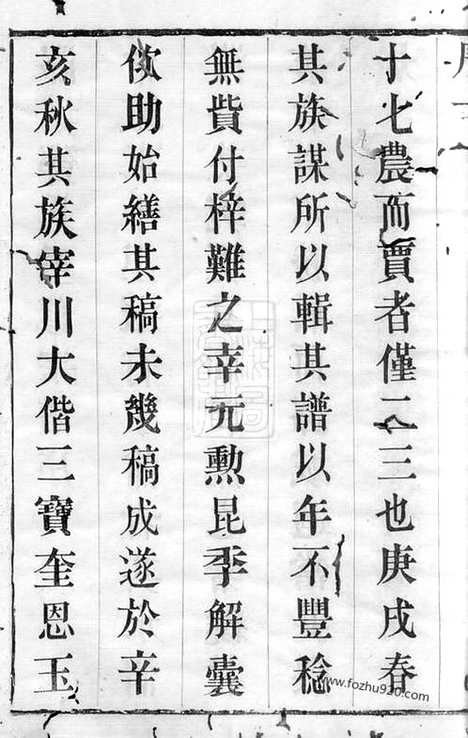 十七農而賈者僅二三也庚戌春
其族謀所以輯其譜以年不豐稔
無貲付梓難之幸元勲昆季解囊
佽助始繕其稿未幾稿成遂於辛
亥秋其族宰川大偕三寶奎恩玉
www.fozhu920.com